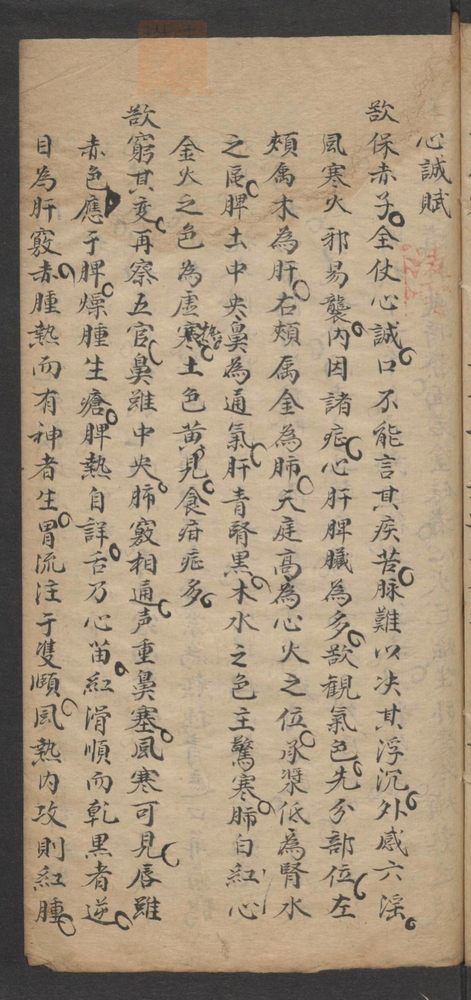 心誠賦
欲保赤子全仗心誠口不能言其疾苦脉難以决其浮沉外感六淫
風寒火邪易襲内因諸疟心肝脾臟為多欲観氣色先分部位左
頬属木為肝右頬属金為肺天庭高為心火之位承漿低為腎水
之区脾土中央鼻為通氣肝青腎黑木水之色主驚寒肺白紅心
金火之色為虚寒熱土色黄見食疳疟多
欲窮其変再察五官鼻雖中央肺竅相通声重鼻塞風寒可見唇雖
赤色應于脾燥腫生瘡脾熱自詳舌乃心苗紅滑順而乹黑者逆
目為肝竅赤腫熱而有神者生胃流注于雙頤風熱内攻則紅腫